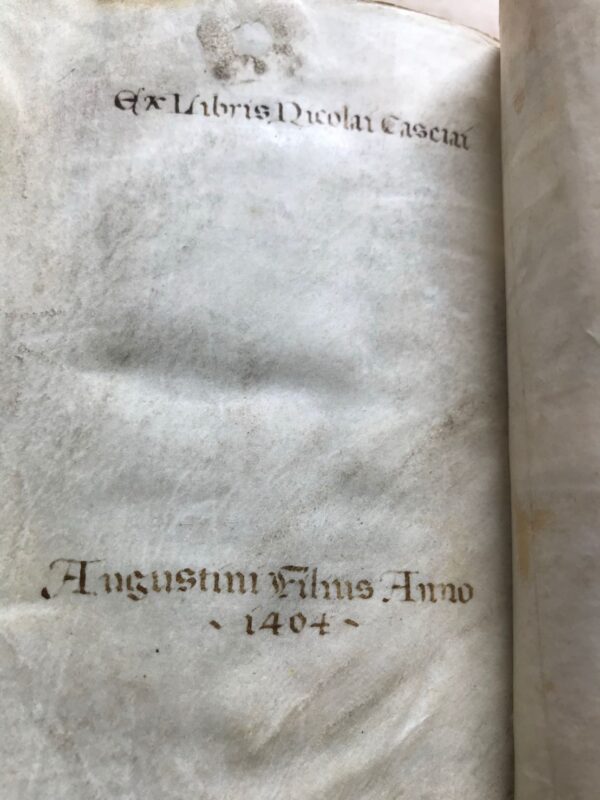 Ex Libris Nicolai Casciai
Augustini Filius Anno
- 1404 -